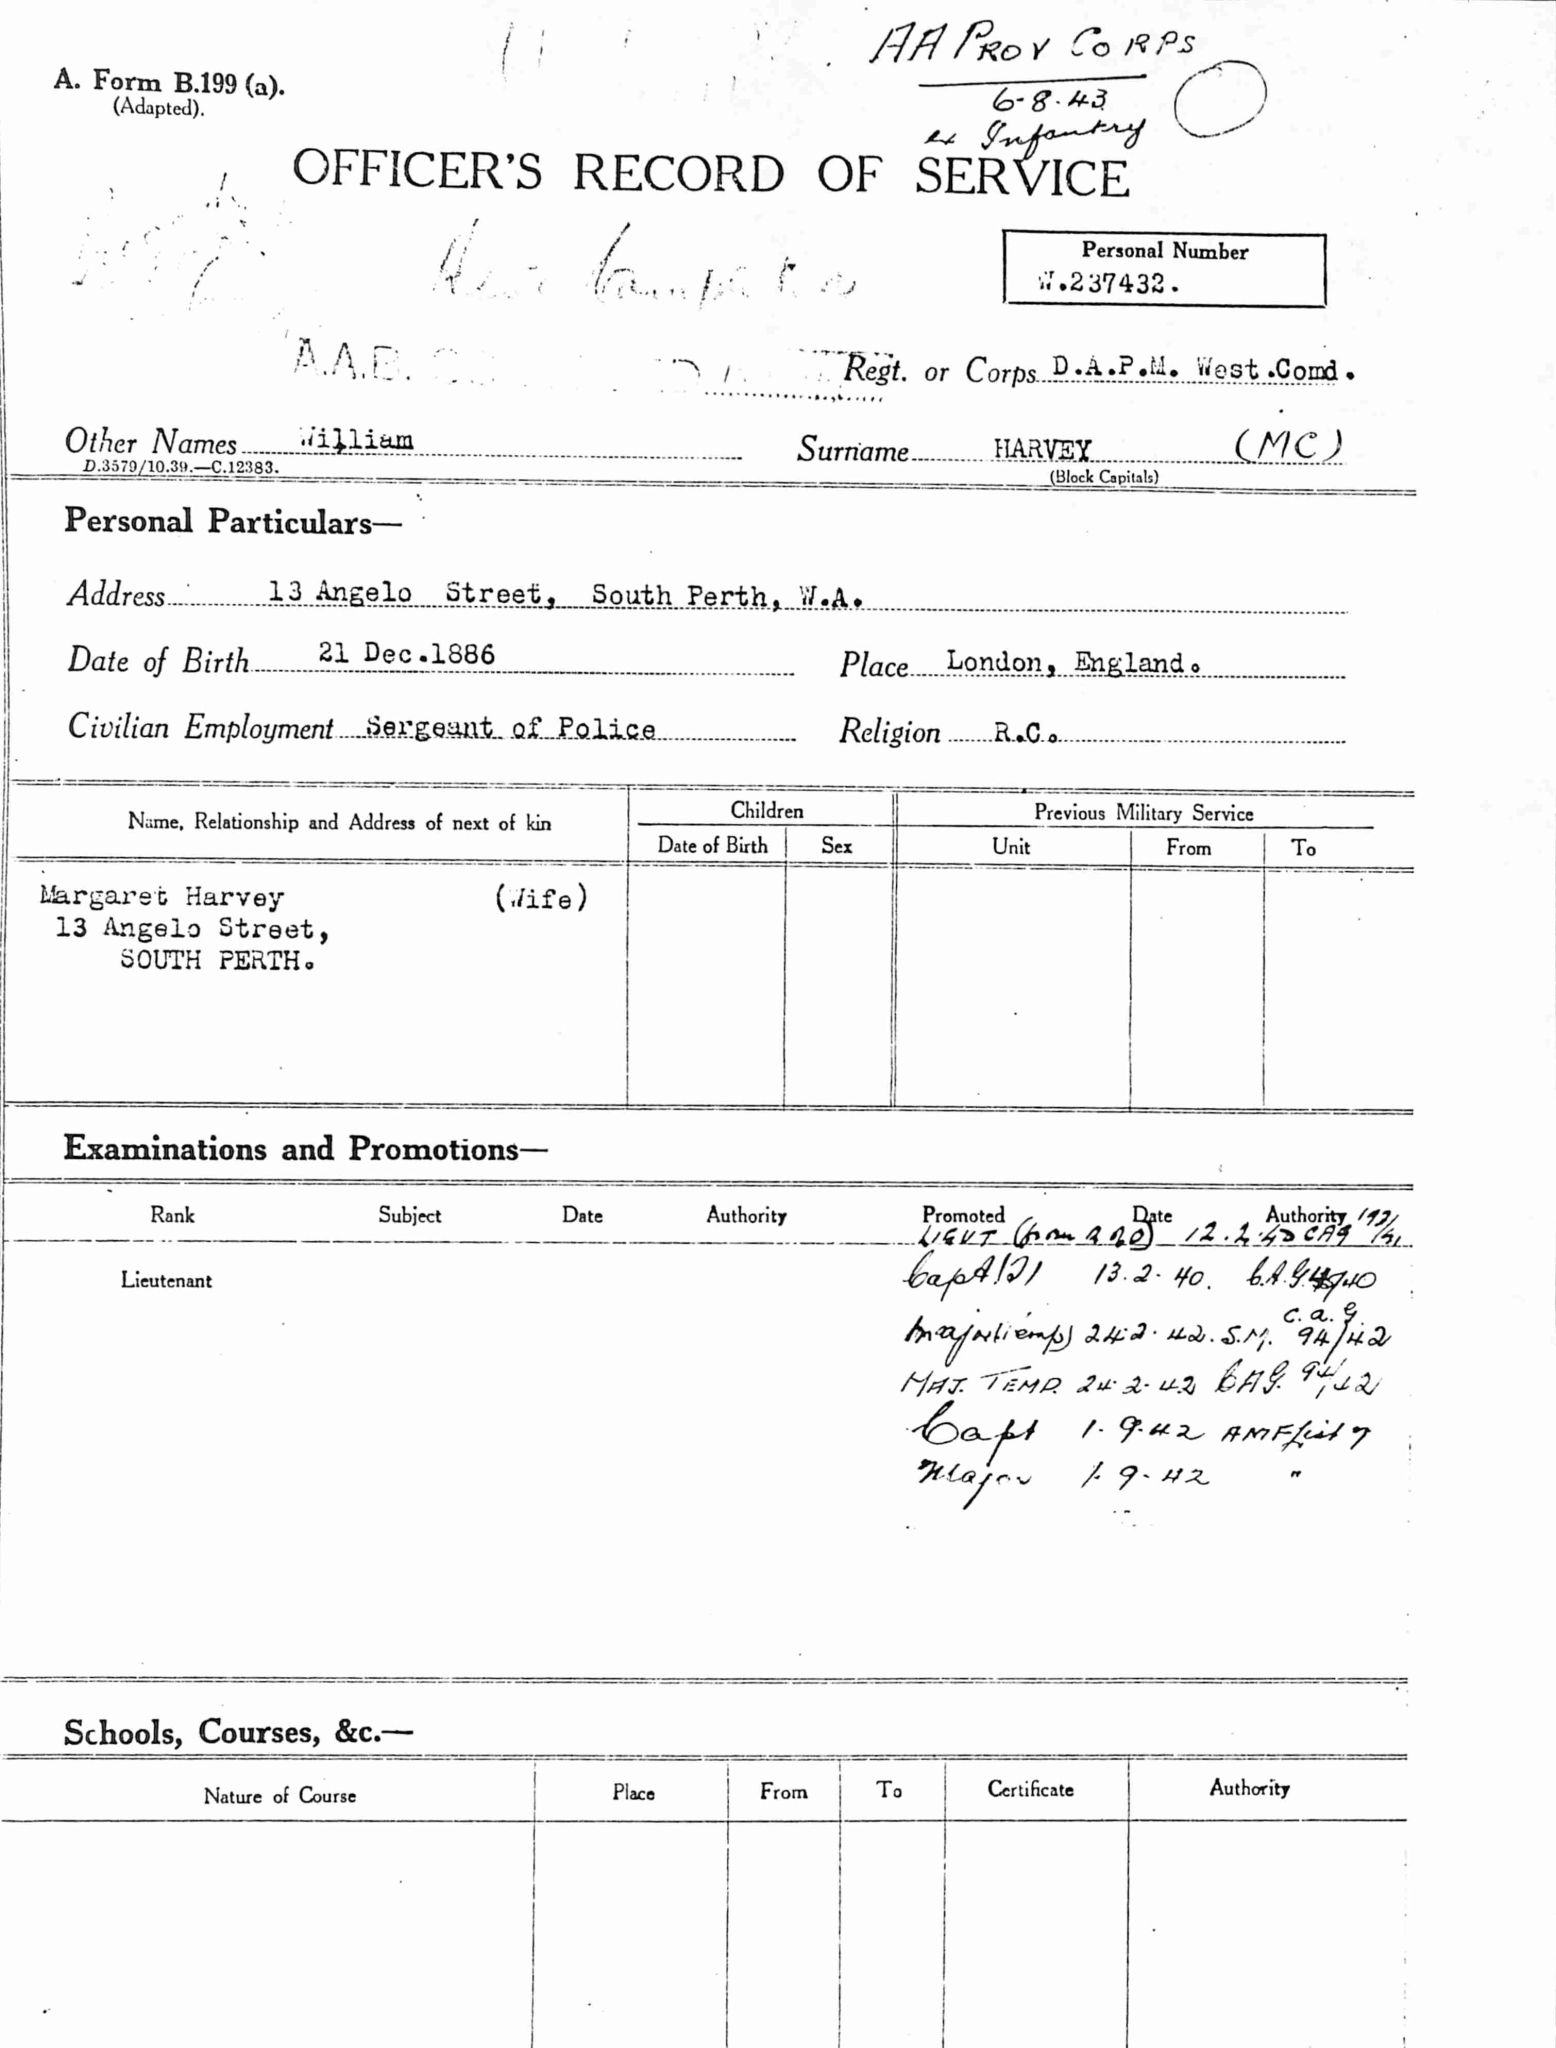 AA PROV CORPS
6-8-43
ex Infantry
A. Form B.199 (a).
(Adapted).
OFFICER'S RECORD OF SERVICE
Personal Number
W.237432.
A.A.B.
Regt. or Corps D.A.P.M. West.Comd.
Other Names William Surname HARVEY (MC)
D.3579/10.39.—C.12383. (Block Capitals)
Personal Particulars—
Address 13 Angelo Street, South Perth, W.A.
Date of Birth 21 Dec.1886 Place London, England.
Civilian Employment Sergeant of Police Religion R.C.
Name, Relationship and Address of next of kin Children Previous Military Service
Date of Birth Sex Unit From To
Margaret Harvey (Wife)
13 Angelo Street,
SOUTH PERTH.
Examinations and Promotions—
Rank Subject Date Authority Promoted Date Authority
LIEUT (from R of O) 12.2.40 CAG
Lieutenant
Capt 13.2.40. C.A.G.
Major (temp) 24.2.42. S.M. C.A.G. 94/42
MAJ. TEMP. 24.2.42 CAG. 94/42
Capt 1.9.42 AMF List 7
Major 1.9.42 "
Schools, Courses, &c.—
Nature of Course Place From To Certificate Authority